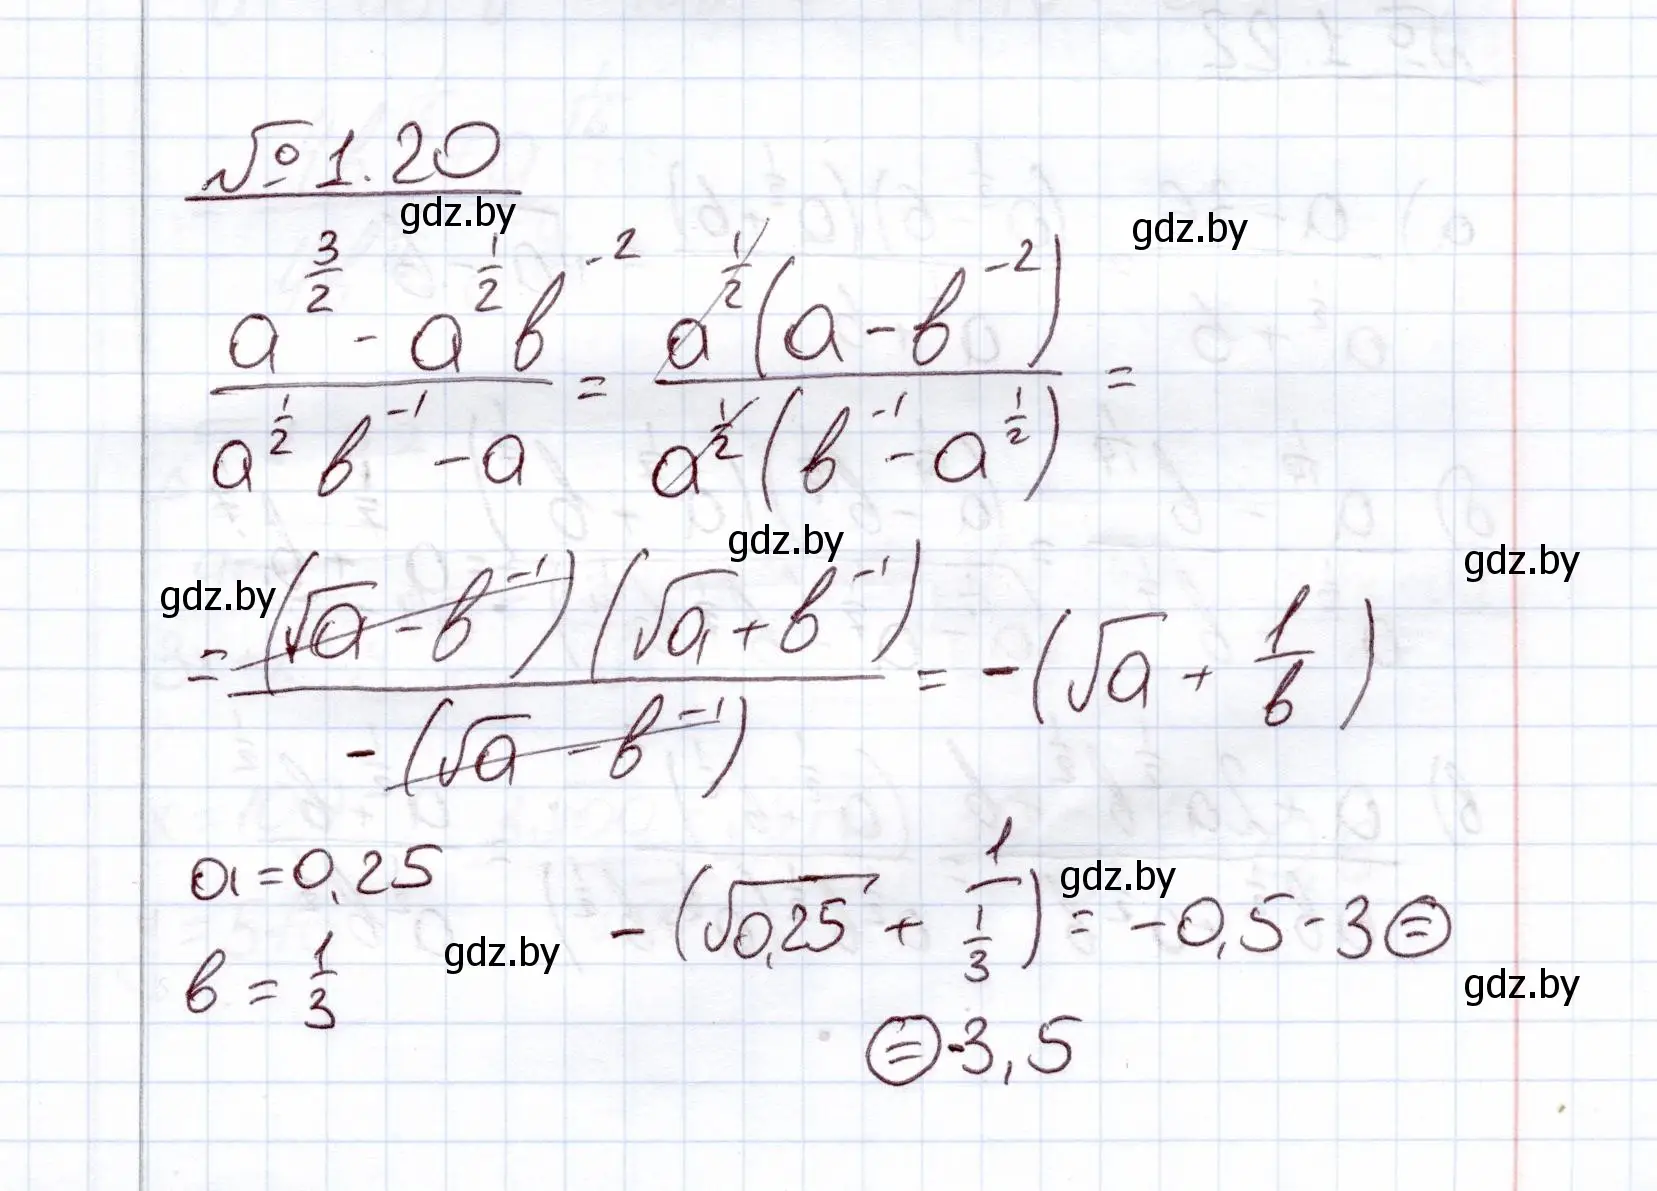 № 1.20
gdz.by gdz.by
\frac{a^{\frac{3}{2}} - a^{\frac{1}{2}} b^{-2}}{a^{\frac{1}{2}} b^{-1} - a} = \frac{a^{\frac{1}{2}} (a - b^{-2})}{a^{\frac{1}{2}} (b^{-1} - a^{\frac{1}{2}})} =
gdz.by gdz.by gdz.by
= \frac{(\sqrt{a} - b^{-1}) (\sqrt{a} + b^{-1})}{-(\sqrt{a} - b^{-1})} = -(\sqrt{a} + \frac{1}{b})
a = 0,25 -(\sqrt{0,25} + \frac{1}{\frac{1}{3}}) = -0,5 - 3 =
gdz.by
b = \frac{1}{3} gdz.by gdz.by
= -3,5